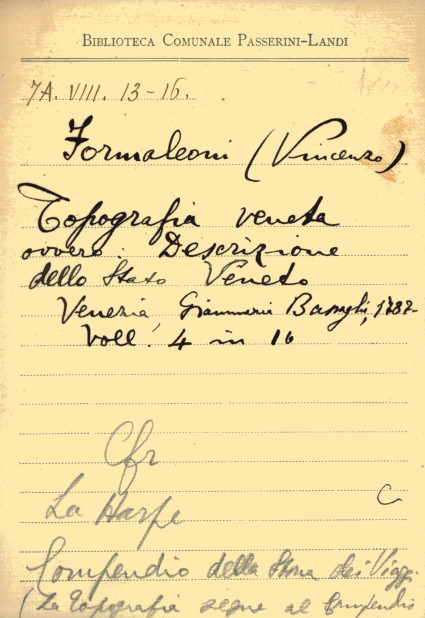 BIBLIOTECA COMUNALE PASSERINI-LANDI
7A. VIII. 13-16.
Formaleoni (Vincenzo)
Topografia veneta
ovvero Descrizione
dello Stato Veneto
Venezia, Giammaria Bassaglia, 1787-
Voll. 4 in 16
Cfr
C
La Harpe
Compendio della Storia dei Viaggi
(La Topografia segue al Compendio